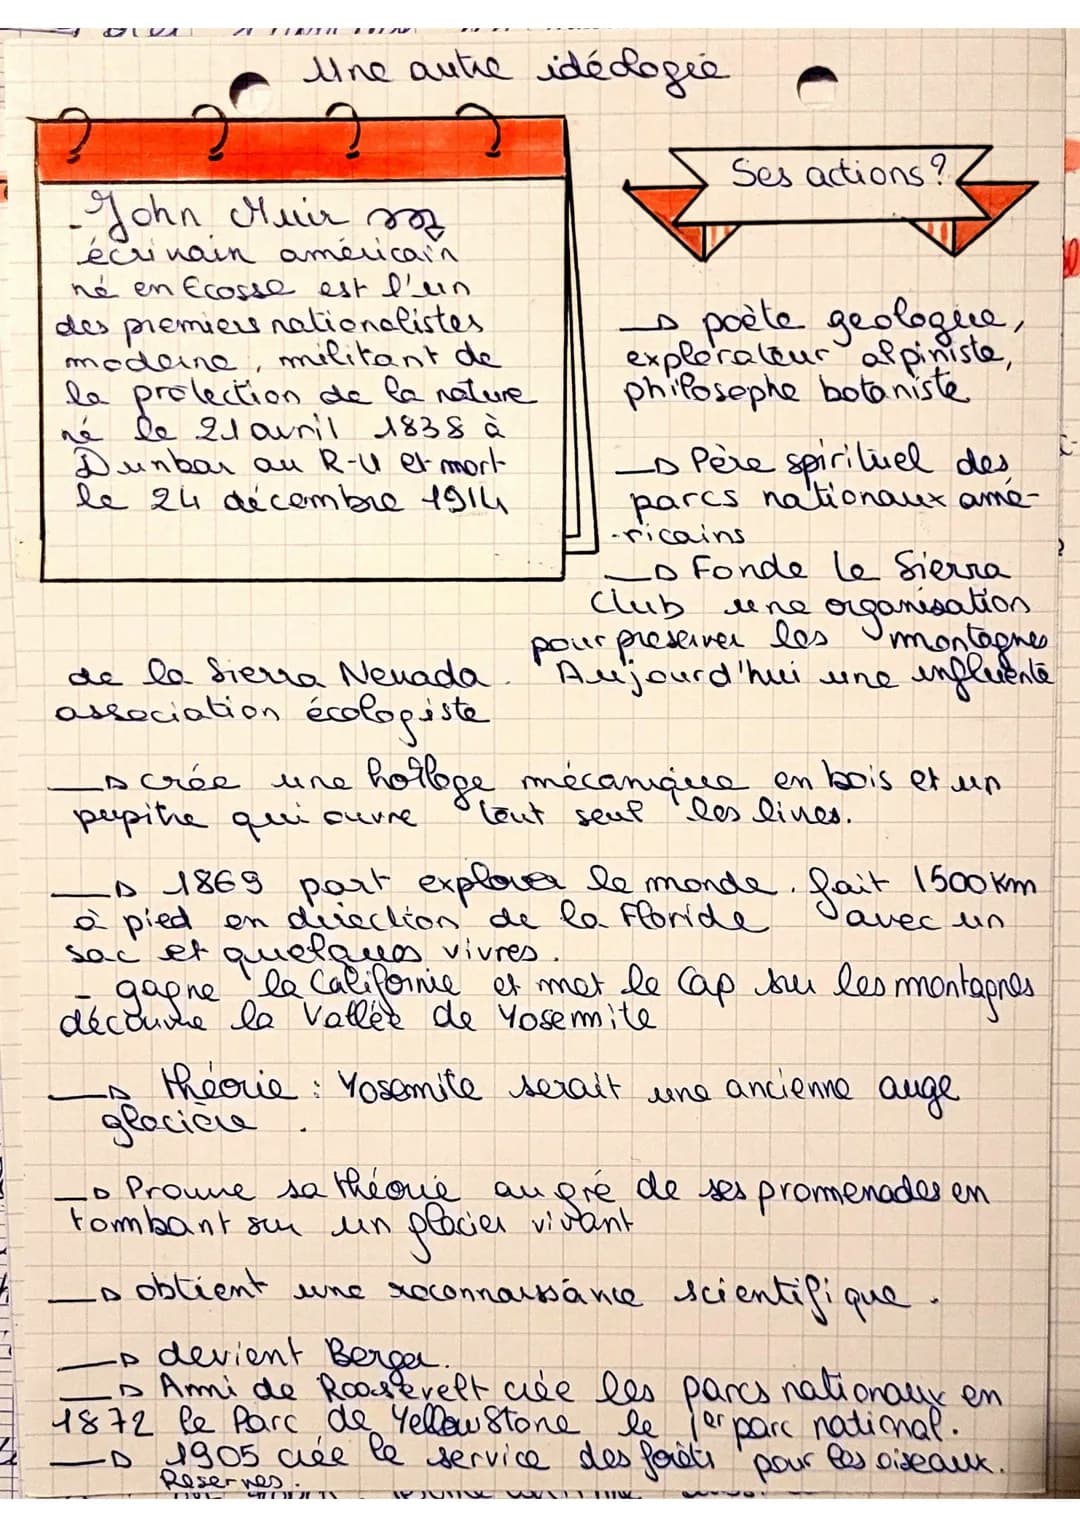 Une autre idéologie
- John Muir
écrivain américain
né en Ecosse est l'un
des premiers nationalistes
moderne, militant de
la protection de la nature
né le 21 avril 1838 à
Dunbar au R-U et mort
le 24 décembre 1914
Ses actions ?
→ poète geologue,
explorateur alpiniste,
philosophe botaniste
→ Père spirituel des
parcs nationaux amé-
-ricains
→ Fonde le Sierra
Club une organisation
pour preserver les montagnes
de la Sierra Nevada. Aujourd'hui une influente
association écologiste
→ crée une horloge mécanique en bois et un
pupitre qui ouvre tout seul les livres.
→ 1869 part explorer le monde. fait 1500 km
à pied en direction de la Floride avec un
sac et quelques vivres.
- gagne la Californie et met le Cap sur les montagnes
découvre la Vallée de Yosemite
→ théorie : Yosemite serait une ancienne auge
glacière.
→ Prouve sa théorie au gré de ses promenades en
tombant sur un glacier vivant
→ obtient une reconnaissance scientifique.
→ devient Berger.
→ Ami de Roosevelt crée les parcs nationaux en
1872 le Parc de Yellowstone le 1er parc national.
→ 1905 crée le service des forêts pour les oiseaux.
Reserves.